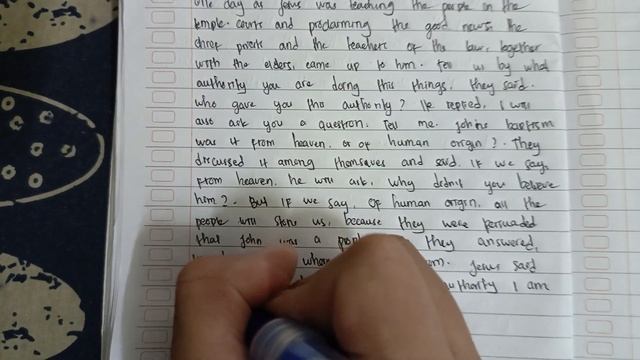 One day as Jesus was teaching the people in the
temple courts and proclaiming the good news, the
chief priests and the teachers of the law, together
with the elders, came up to him. Tell us by what
authority you are doing this things. they said.
who gave you this authority? He replied, I will
also ask you a question. Tell me. Johns baptism
was it from heaven, or of human origin? They
discussed it among themselves and said, If we say,
From heaven, he will ask, why didn't you believe
him? But if we say, Of human origin, all the
people will stone us, because they were persuaded
that John was a they answered,
Jesus said
authority I am